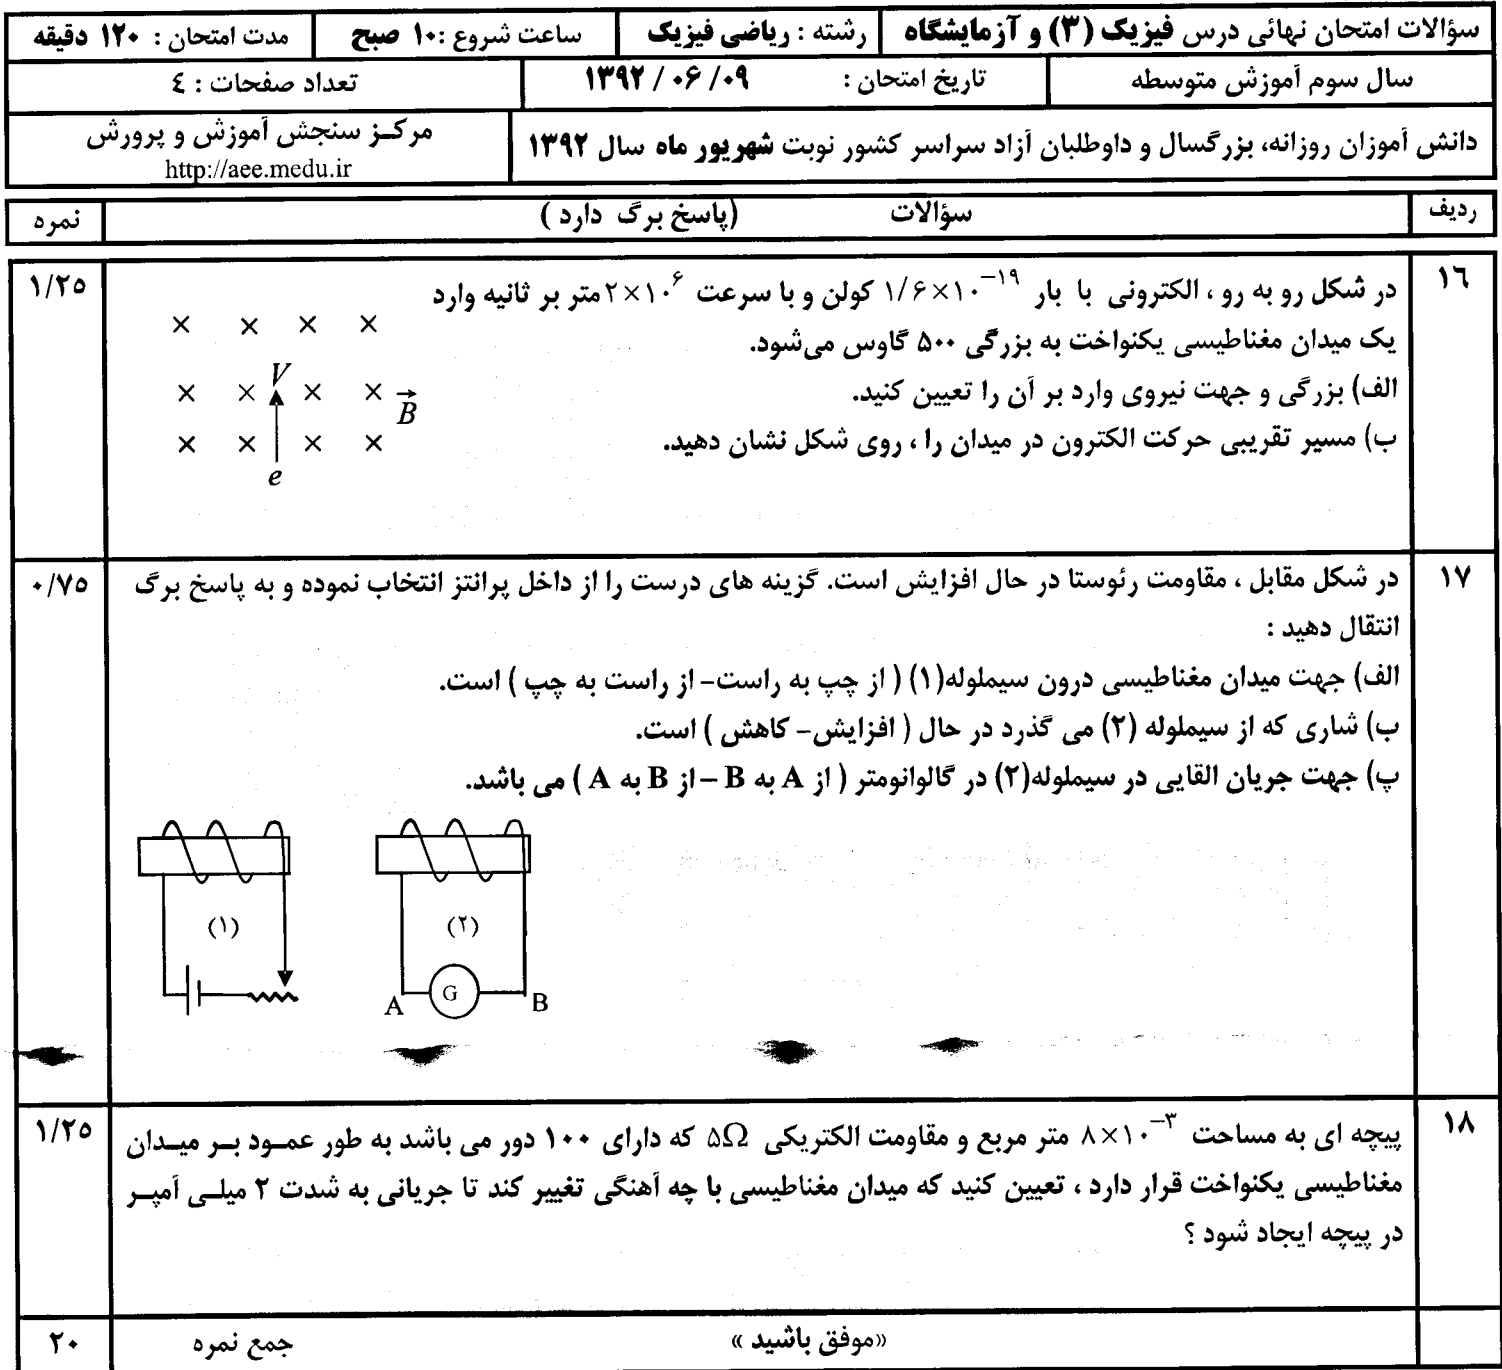 سؤالات امتحان نهائی درس فیزیک (۳) و آزمایشگاه
رشته : ریاضی فیزیک
ساعت شروع :۱۰ صبح
مدت امتحان : ۱۲۰ دقیقه
سال سوم آموزش متوسطه
تاریخ امتحان : ۱۳۹۲ / ۰۶ / ۰۹
تعداد صفحات : ٤
دانش آموزان روزانه، بزرگسال و داوطلبان آزاد سراسر کشور نوبت شهریور ماه سال ۱۳۹۲
مرکـز سنجش آموزش و پرورش
http://aee.medu.ir
ردیف
سؤالات (پاسخ برگ دارد )
نمره
۱٦
در شکل رو به رو ، الکترونی با بار ۱/۶×۱۰⁻¹⁹ کولن و با سرعت ۲×۱۰⁶ متر بر ثانیه وارد
یک میدان مغناطیسی یکنواخت به بزرگی ۵۰۰ گاوس می‌شود.
الف) بزرگی و جهت نیروی وارد بر آن را تعیین کنید.
ب) مسیر تقریبی حرکت الکترون در میدان را ، روی شکل نشان دهید.
× × × ×
V
× × × × B
× × × ×
e
۱/۲۵
۱۷
در شکل مقابل ، مقاومت رئوستا در حال افزایش است. گزینه های درست را از داخل پرانتز انتخاب نموده و به پاسخ برگ
انتقال دهید :
الف) جهت میدان مغناطیسی درون سیملوله(۱) ( از چپ به راست- از راست به چپ ) است.
ب) شاری که از سیملوله (۲) می گذرد در حال ( افزایش- کاهش ) است.
پ) جهت جریان القایی در سیملوله(۲) در گالوانومتر ( از A به B – از B به A ) می باشد.
(۱)
(۲)
A G B
۰/۷۵
۱۸
پیچه ای به مساحت ۸×۱۰⁻³ متر مربع و مقاومت الکتریکی ۵Ω که دارای ۱۰۰ دور می باشد به طور عمـود بـر میـدان
مغناطیسی یکنواخت قرار دارد ، تعیین کنید که میدان مغناطیسی با چه آهنگی تغییر کند تا جریانی به شدت ۲ میلـی آمپـر
در پیچه ایجاد شود ؟
۱/۲۵
«موفق باشید »
جمع نمره
۲۰